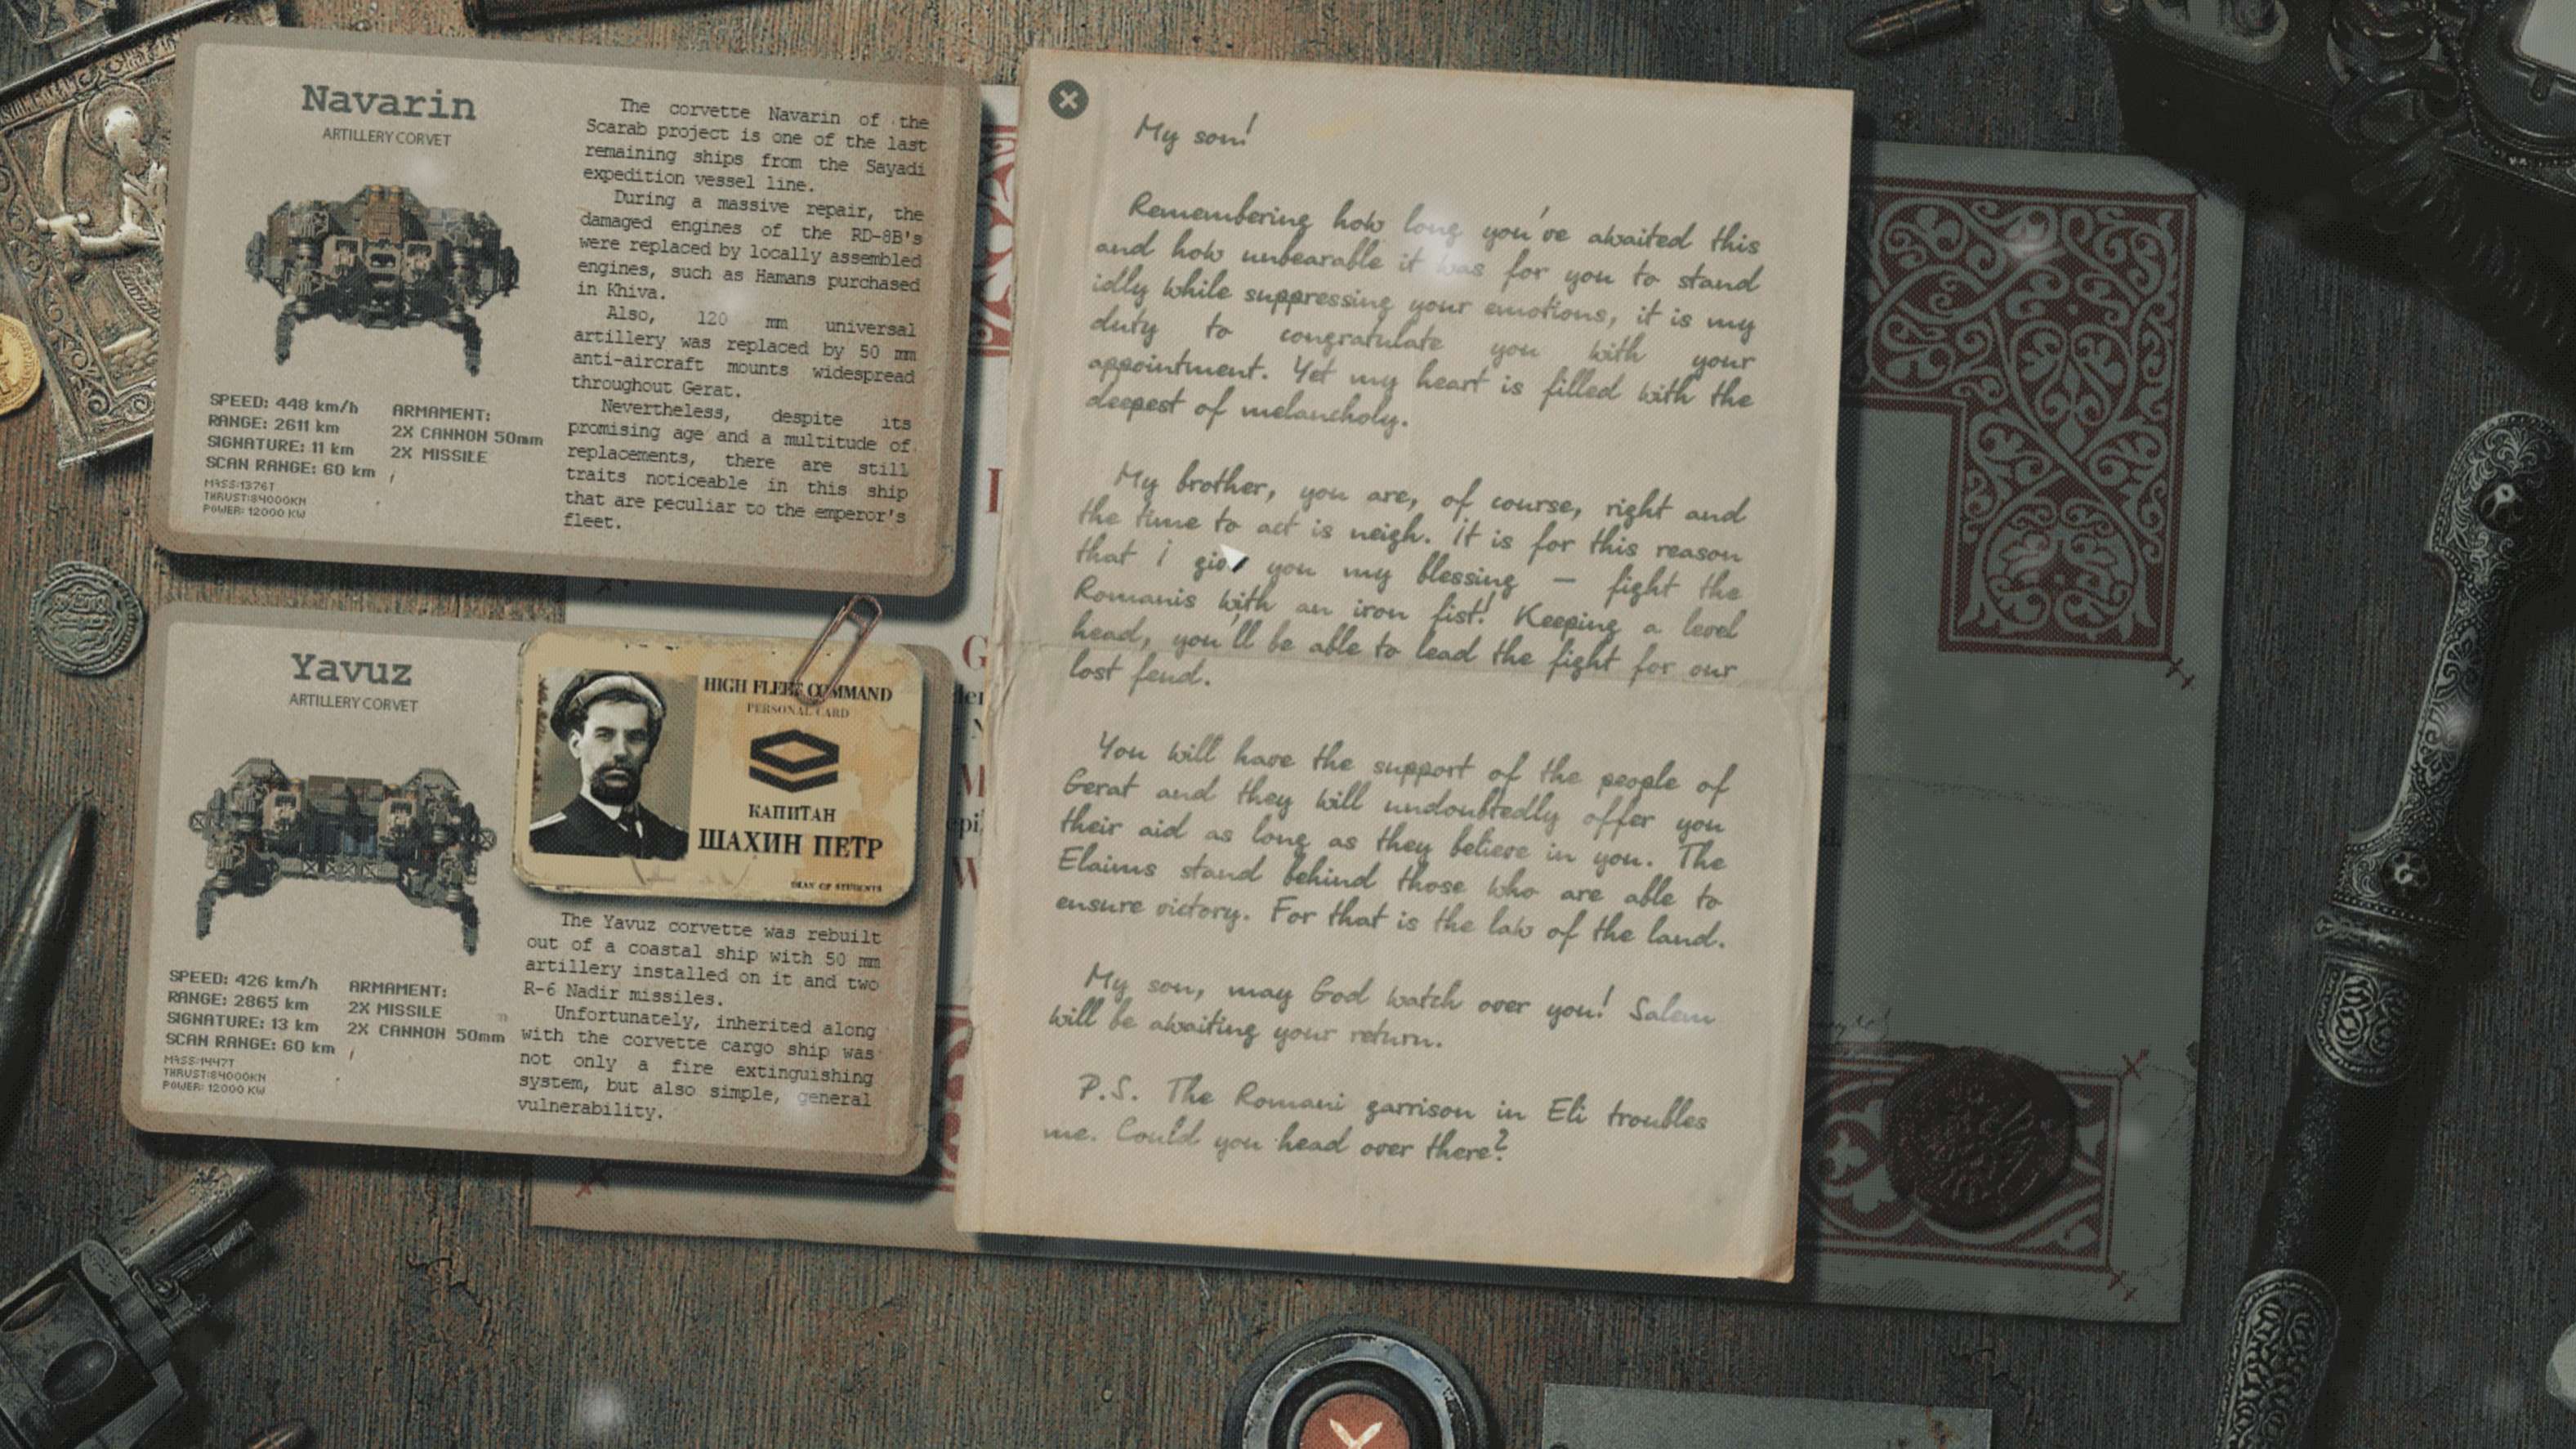 Navarin
ARTILLERY CORVET
SPEED: 448 km/h
RANGE: 2611 km
SIGNATURE: 11 km
SCAN RANGE: 60 km
MASS:1376T
THRUST:84000KN
POWER: 12000 KW
ARMAMENT:
2X CANNON 50mm
2X MISSILE
The corvette Navarin of the
Scarab project is one of the last
remaining ships from the Sayadi
expedition vessel line.
During a massive repair, the
damaged engines of the RD-8B's
were replaced by locally assembled
engines, such as Hamans purchased
in Khiva.
Also, 120 mm universal
artillery was replaced by 50 mm
anti-aircraft mounts widespread
throughout Gerat.
Nevertheless, despite its
promising age and a multitude of
replacements, there are still
traits noticeable in this ship
that are peculiar to the emperor's
fleet.
Yavuz
ARTILLERY CORVET
SPEED: 426 km/h
RANGE: 2865 km
SIGNATURE: 13 km
SCAN RANGE: 60 km
MASS:1447T
THRUST:84000KN
POWER: 12000 KW
ARMAMENT:
2X MISSILE
2X CANNON 50mm
HIGH FLEET COMMAND
PERSONAL CARD
КАПИТАН
ШАХИН ПЕТР
DEAN OF STUDENTS
The Yavuz corvette was rebuilt
out of a coastal ship with 50 mm
artillery installed on it and two
R-6 Nadir missiles.
Unfortunately, inherited along
with the corvette cargo ship was
not only a fire extinguishing
system, but also simple, general
vulnerability.
My son!
Remembering how long you've awaited this
and how unbearable it was for you to stand
idly while suppressing your emotions, it is my
duty to congratulate you with your
appointment. Yet my heart is filled with the
deepest of melancholy.
My brother, you are, of course, right and
the time to act is neigh. It is for this reason
that i give you my blessing – fight the
Romanis with an iron fist! Keeping a level
head, you'll be able to lead the fight for our
lost fend.
You will have the support of the people of
Gerat and they will undoubtedly offer you
their aid as long as they believe in you. The
Elaims stand behind those who are able to
ensure victory. For that is the law of the land.
My son, may God watch over you! Salem
will be awaiting your return.
P.S. The Romani garrison in Eli troubles
me. Could you head over there?